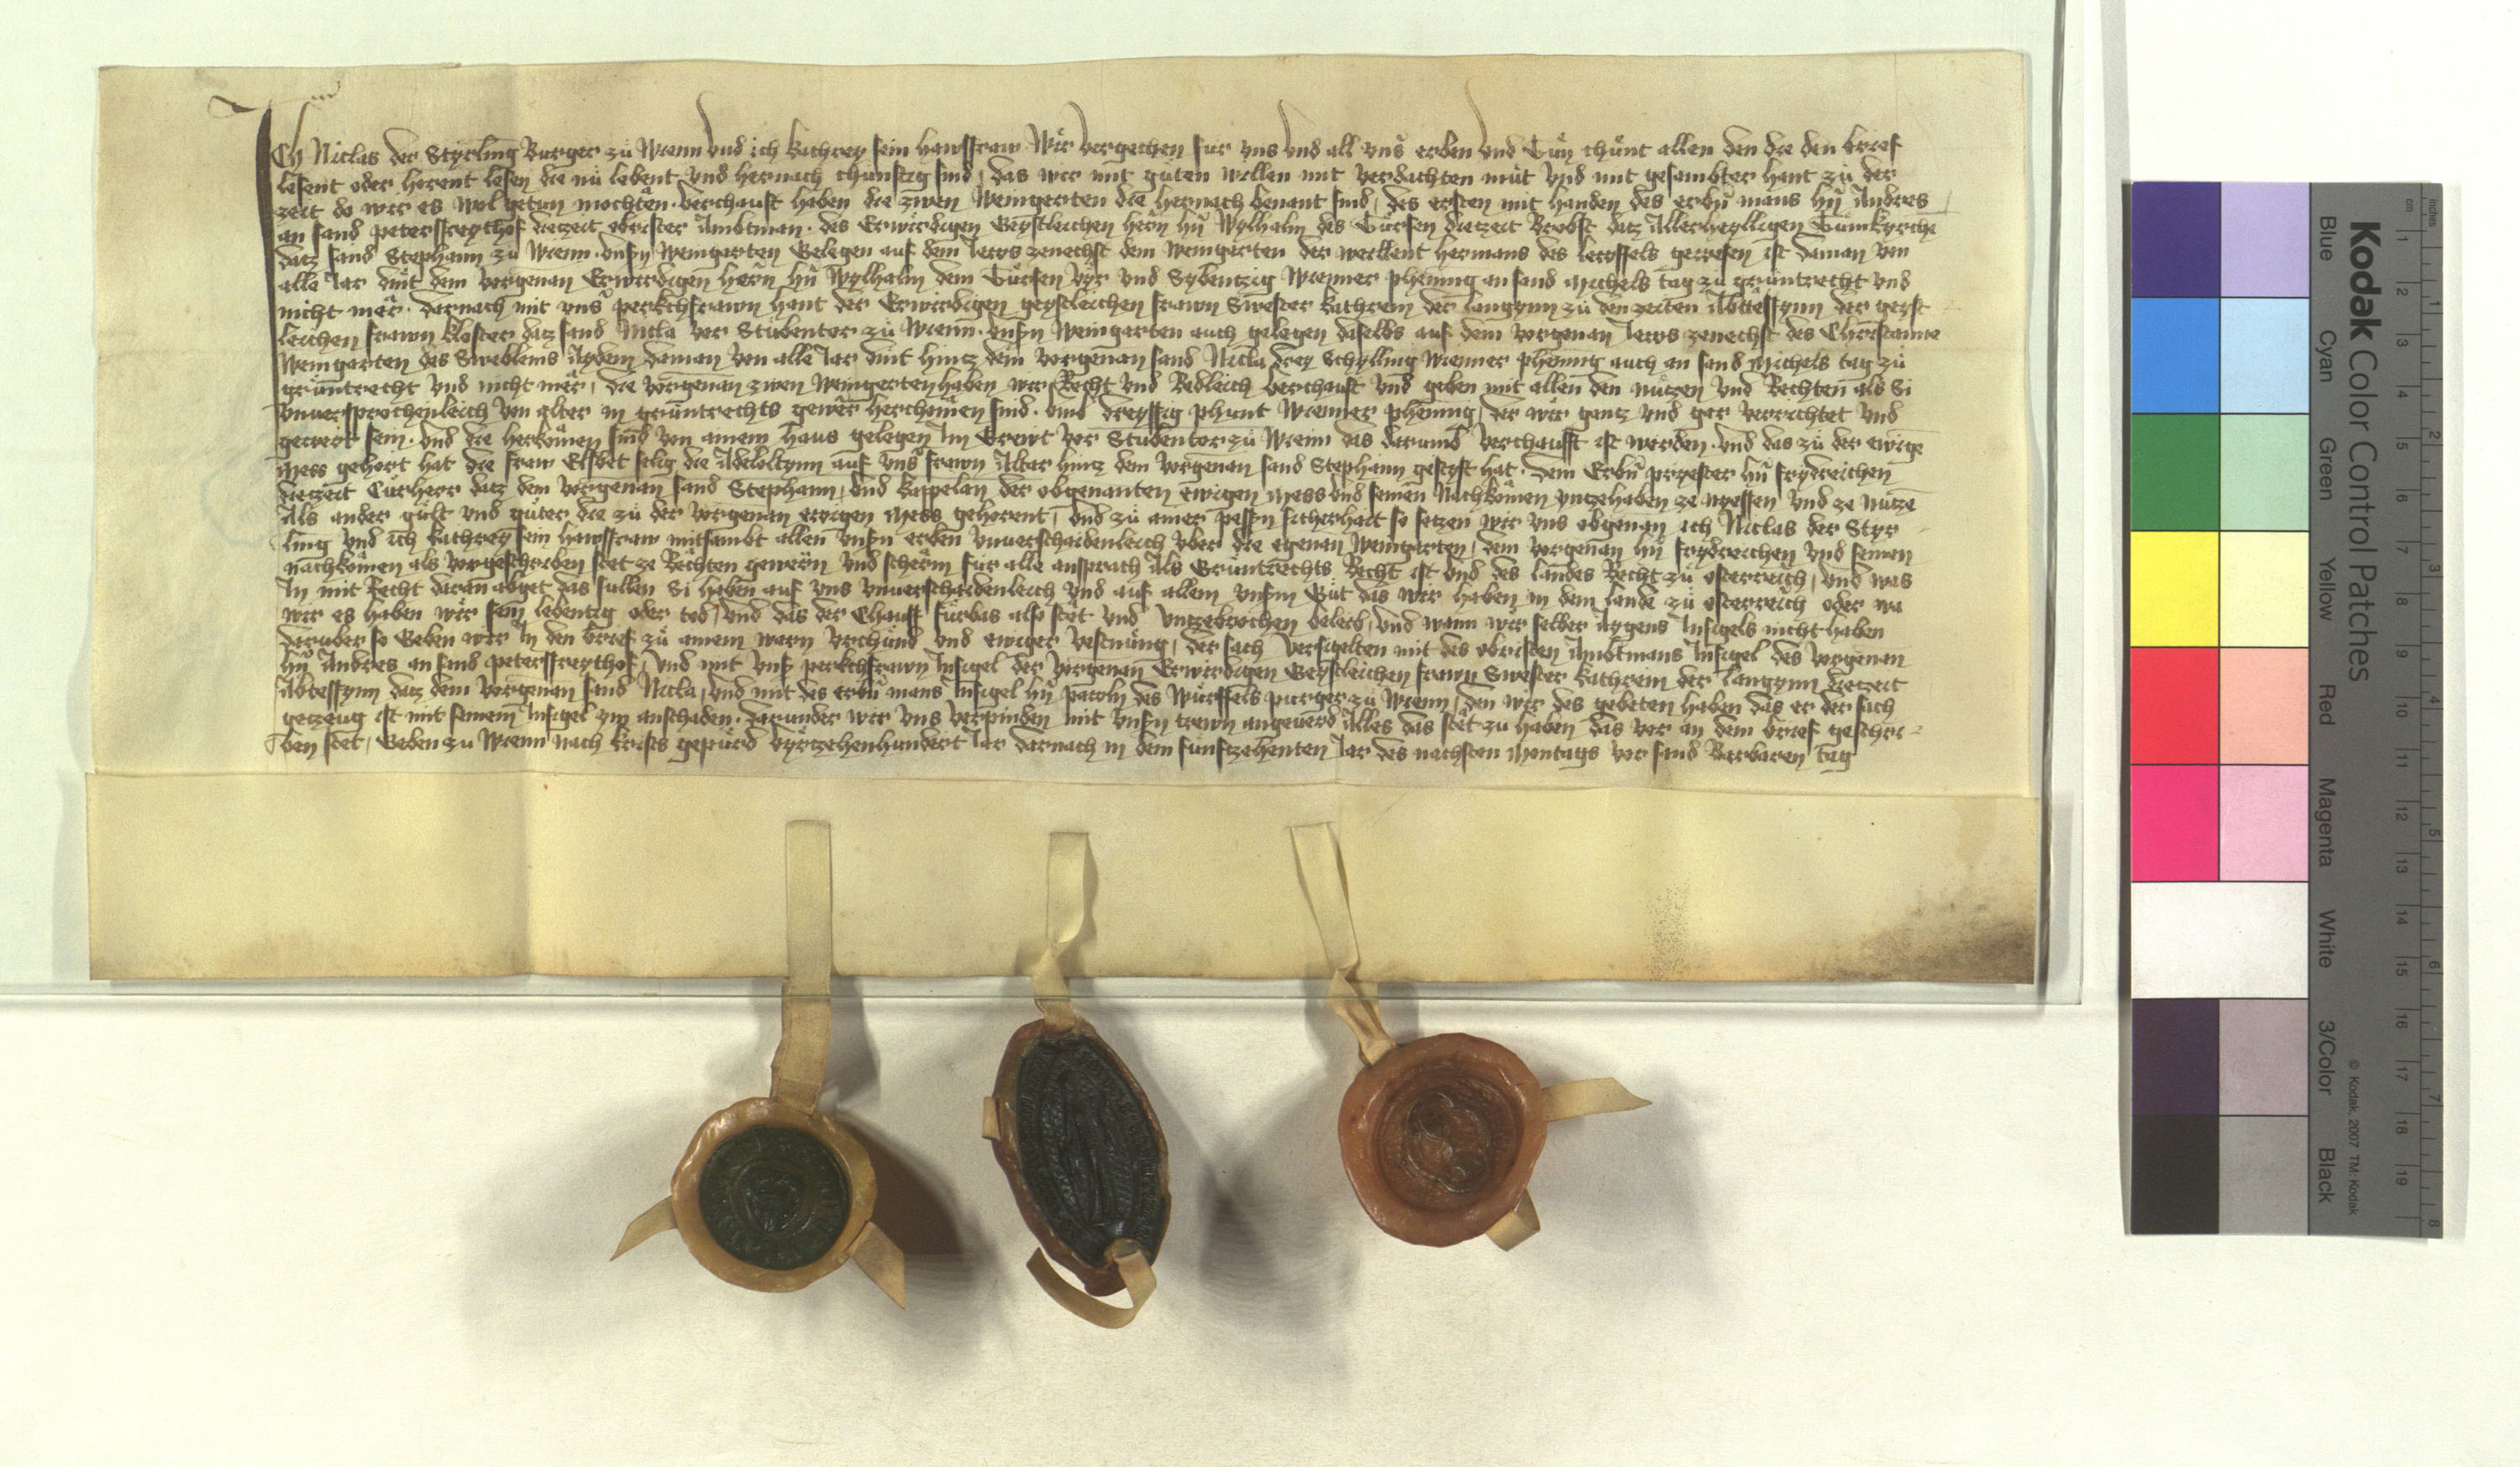 ICh Niclas der Styrling Burger zů Wienn vnd ich kathrey sein hawsfraw Wir vergechen für vns vnd all vnsˀ erben vnd Tůn chůnt allen den die den brief
lesent oder hörent lesen die nů lebent vnd hernach chunftig sind, das wir mit gůten willen mit verdachten můt vnd mit gesambter hant zů der
zeit do wir es wol getun mochten verchauft haben die zwen Weingerten die hernach benant sind, des ersten mit handen des erbˀn mans hˀn Andres
an sand petersfreythof diezeit obrister Ambtman des Erwirdigen Geystleichen herˀn hˀn Wylhalm des Tůrsen diezeit Brobst datz Allerheyligen Tůmkyrche
datz sand Stephann zů Wienn vnsˀn Weingarten Gelegen auf dem zenechst dem Weingarten der weillent hermans des gewesen ist daman von
alle Jar dint dem vorgenan Erwirdigen herˀn hˀn Wylhalm dem Tůrsen vyr vnd Sybentzig Wienner phening an sand Michels tag zů gruntrecht vnd
nicht mer. darnach mit vnsˀ perkchfrawn hant der Erwirdigen geystleichen frawn Swester kathrein der langynn zů den zeiten Abttessynn der geyst
leichen frawn kloster datz sand Nicla vor Stubentor zů Wienn vnsˀn Weingarten auch gelegen daselbs auf dem vorgenan zenechst des
Weingarten des Aydem daman von alle Jar dint hintz dem vorgenan sand Nicla drey Schylling Wienner phening auch an sand Michels tag zů
gruntrecht vnd nicht mer, die vorgenan zwen Weingerten haben wir Recht vnd Redleich verchauft vnd geben mit allen den nůtzen vnd Rechten als Si
vnuersprochenleich von alter in gruntrechts gewer herchomen sind vmb dreyssig phunt Wienner phening, der wir gantz vnd gar verrichtet vnd
gewert sein. vnd die herkomen sind von ainem haus gelegen Im vor Stubentor zů Wienn das darumb verchaufft ist worden vnd das zů der ewige
Mess gehort hat die fraw Elsbet selig die Adeloltynn auf vnsˀ frawn Alter hintz dem vorgenan sand Stephann gestyft hat. dem Erbˀn priester hˀn fridreichen
diezeit Cůrherr datz dem vorgenan sand Stephann, vnd kappelan der obgenanten ewigen Mess vnd seinen Nachkomen ze nyessen vnd ze nutze
Als ander gült vnd güter die zů der vorgenan ewigen Mess gehorent, vnd zů ainer pessˀn sicherhait so setzen wir vns obgenan ich Niclas der Styr
ling vnd ich kathrey sein hawsfraw mitsambt allen vnsˀn erben vnuerschaidenleich vber die egenan Weingarten, dem vorgenan hˀn frydreichen vnd seinen
nachkomen als vorgeschriben stet ze Rechten gewern vnd scherm für alle ansprach Als Gruntrechts Recht ist vnd des landes Recht zů osterreich, vnd was
In mit Recht daran abget das sullen Si haben auf vns vnuerschaidenleich vnd auf allem vnsˀm Gůt das wir haben in dem lande zů osterreich oder wa
wir es haben wir sein lebentig oder tod, vnd das der Chauff fürbas also stet vnd vntzebrochen beleib, vnd wann wir selber Aygens Insigels nicht haben
darüber so Geben wir In den brief zů ainem warn vrchünd vnd ewiger vestnůng, der sach versigelten mit des obristen Ambtmans Insigel des vorgenan
hˀn Andres an sand petersfreythof, vnd mit vnsˀ perkchfrawn Insigel der vorgenan Erwirdigen Geystleichen frawn Swester kathrein der langynn diezeit
Abtessynn datz dem vorgenan sand Nicla, vnd mit des erbˀn mans Insigel hˀn pawln des Würffels purger zů Wienn, den wir des gebeten haben das er der sach
getzeug ist mit seinem Insigel ym anschaden. darunder wir vns verpinden mit vnsˀn trewn angeuerd Alles das stet zu haben das vor an dem brief geschri-
ben stet, Geben zu Wienn nach krists gepürd vyrtzehenhundert Jar darnach in dem fünftzehenten Jar des nachsten Montags vor sand Barbaren tag
Kodak Color Control Patches
Blue Cyan Green Yellow Red Magenta White 3/Color Black
© Kodak, 2007 TM: Kodak
inches 1 2 3 4 5 6 7 8
cm 1 2 3 4 5 6 7 8 9 10 11 12 13 14 15 16 17 18 19